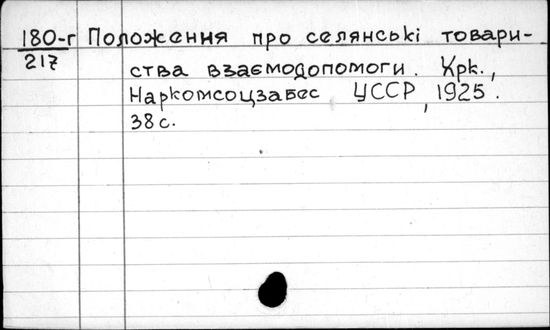 180-г Положення про селянські товари-
217
ства взаємодопомоги. Хрк.,
Наркомсоцзабес УССР, 1925.
38 с.